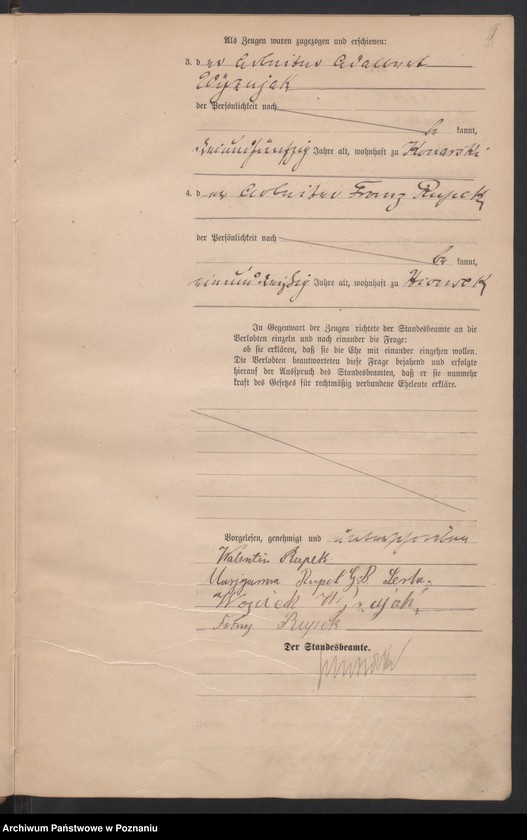 Als Zeugen waren zugezogen und erschienen:
3. der Arbeiter Adalbert
der Persönlichkeit nach
be kannt,
dreiundfünfzig Jahre alt, wohnhaft zu Konarski
4. der Arbeiter Franz Rupek
der Persönlichkeit nach
be kannt,
einunddreißig Jahre alt, wohnhaft zu
In Gegenwart der Zeugen richtete der Standesbeamte an die
Verlobten einzeln und nach einander die Frage:
ob sie erklären, daß sie die Ehe mit einander eingehen wollen.
Die Verlobten beantworteten diese Frage bejahend und erfolgte
hierauf der Ausspruch des Standesbeamten, daß er sie nunmehr
kraft des Gesetzes für rechtmäßig verbundene Eheleute erkläre.
Vorgelesen, genehmigt und unterschrieben
Walentin Rupek
Maryanna Rupek
Wojciech
Franz Rupek
Der Standesbeamte.
Archiwum Państwowe w Poznaniu